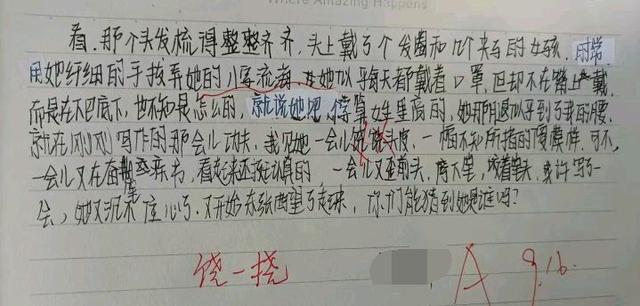 Where Amazing Happens
看,那个头发梳得整整齐齐,头上戴了个发圈和几个夹子的女孩,时常
用她纤细的手拨弄她的小流海,她似乎每天都戴着口罩,但却不在嘴上戴,
而是在下巴底下,也不知是怎么的,就说她吧,得算女生里高的,她那腿似乎到了我的腰,
就在刚刚写作的那会儿功夫,我见她一会儿饶饶头皮,一幅不知所措的傻模样,可不,
一会儿又在奋起来,看起来还挺认真的,一会儿又歪着头,咬着笔头,或许写了一
会,她又沉不住心了,又开始东张西望了起来,你们能猜到她是谁吗?
饶一挠
A 9.16.